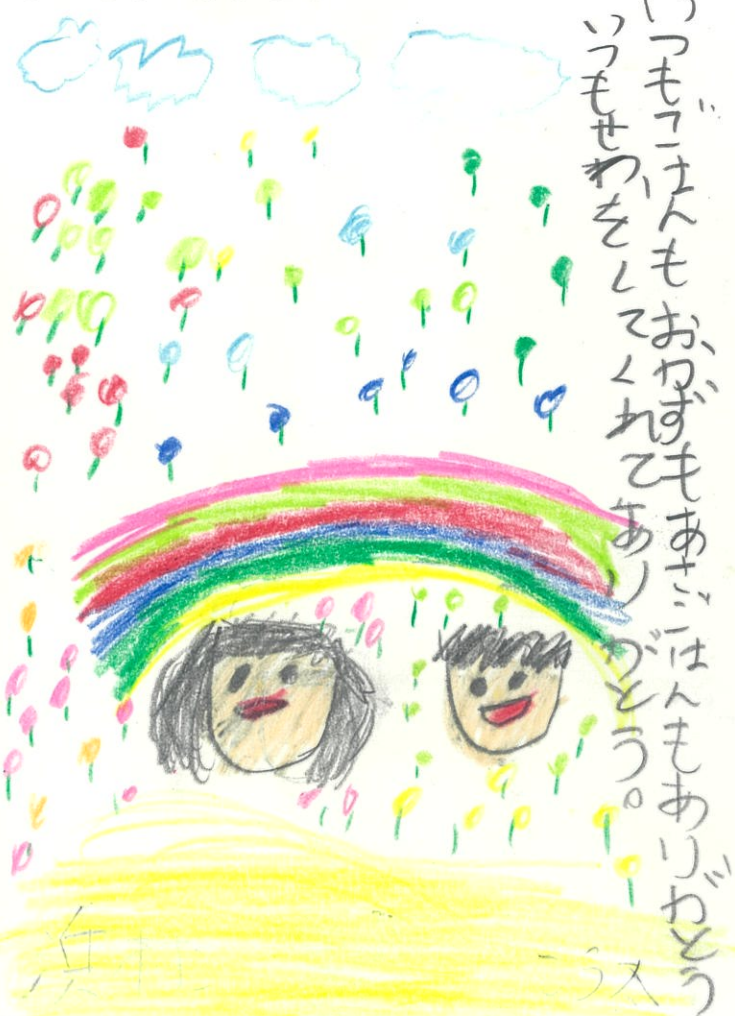 いつもごはんもおかずもあさごはんもありがとう
いつもせわをしてくれてありがとう。